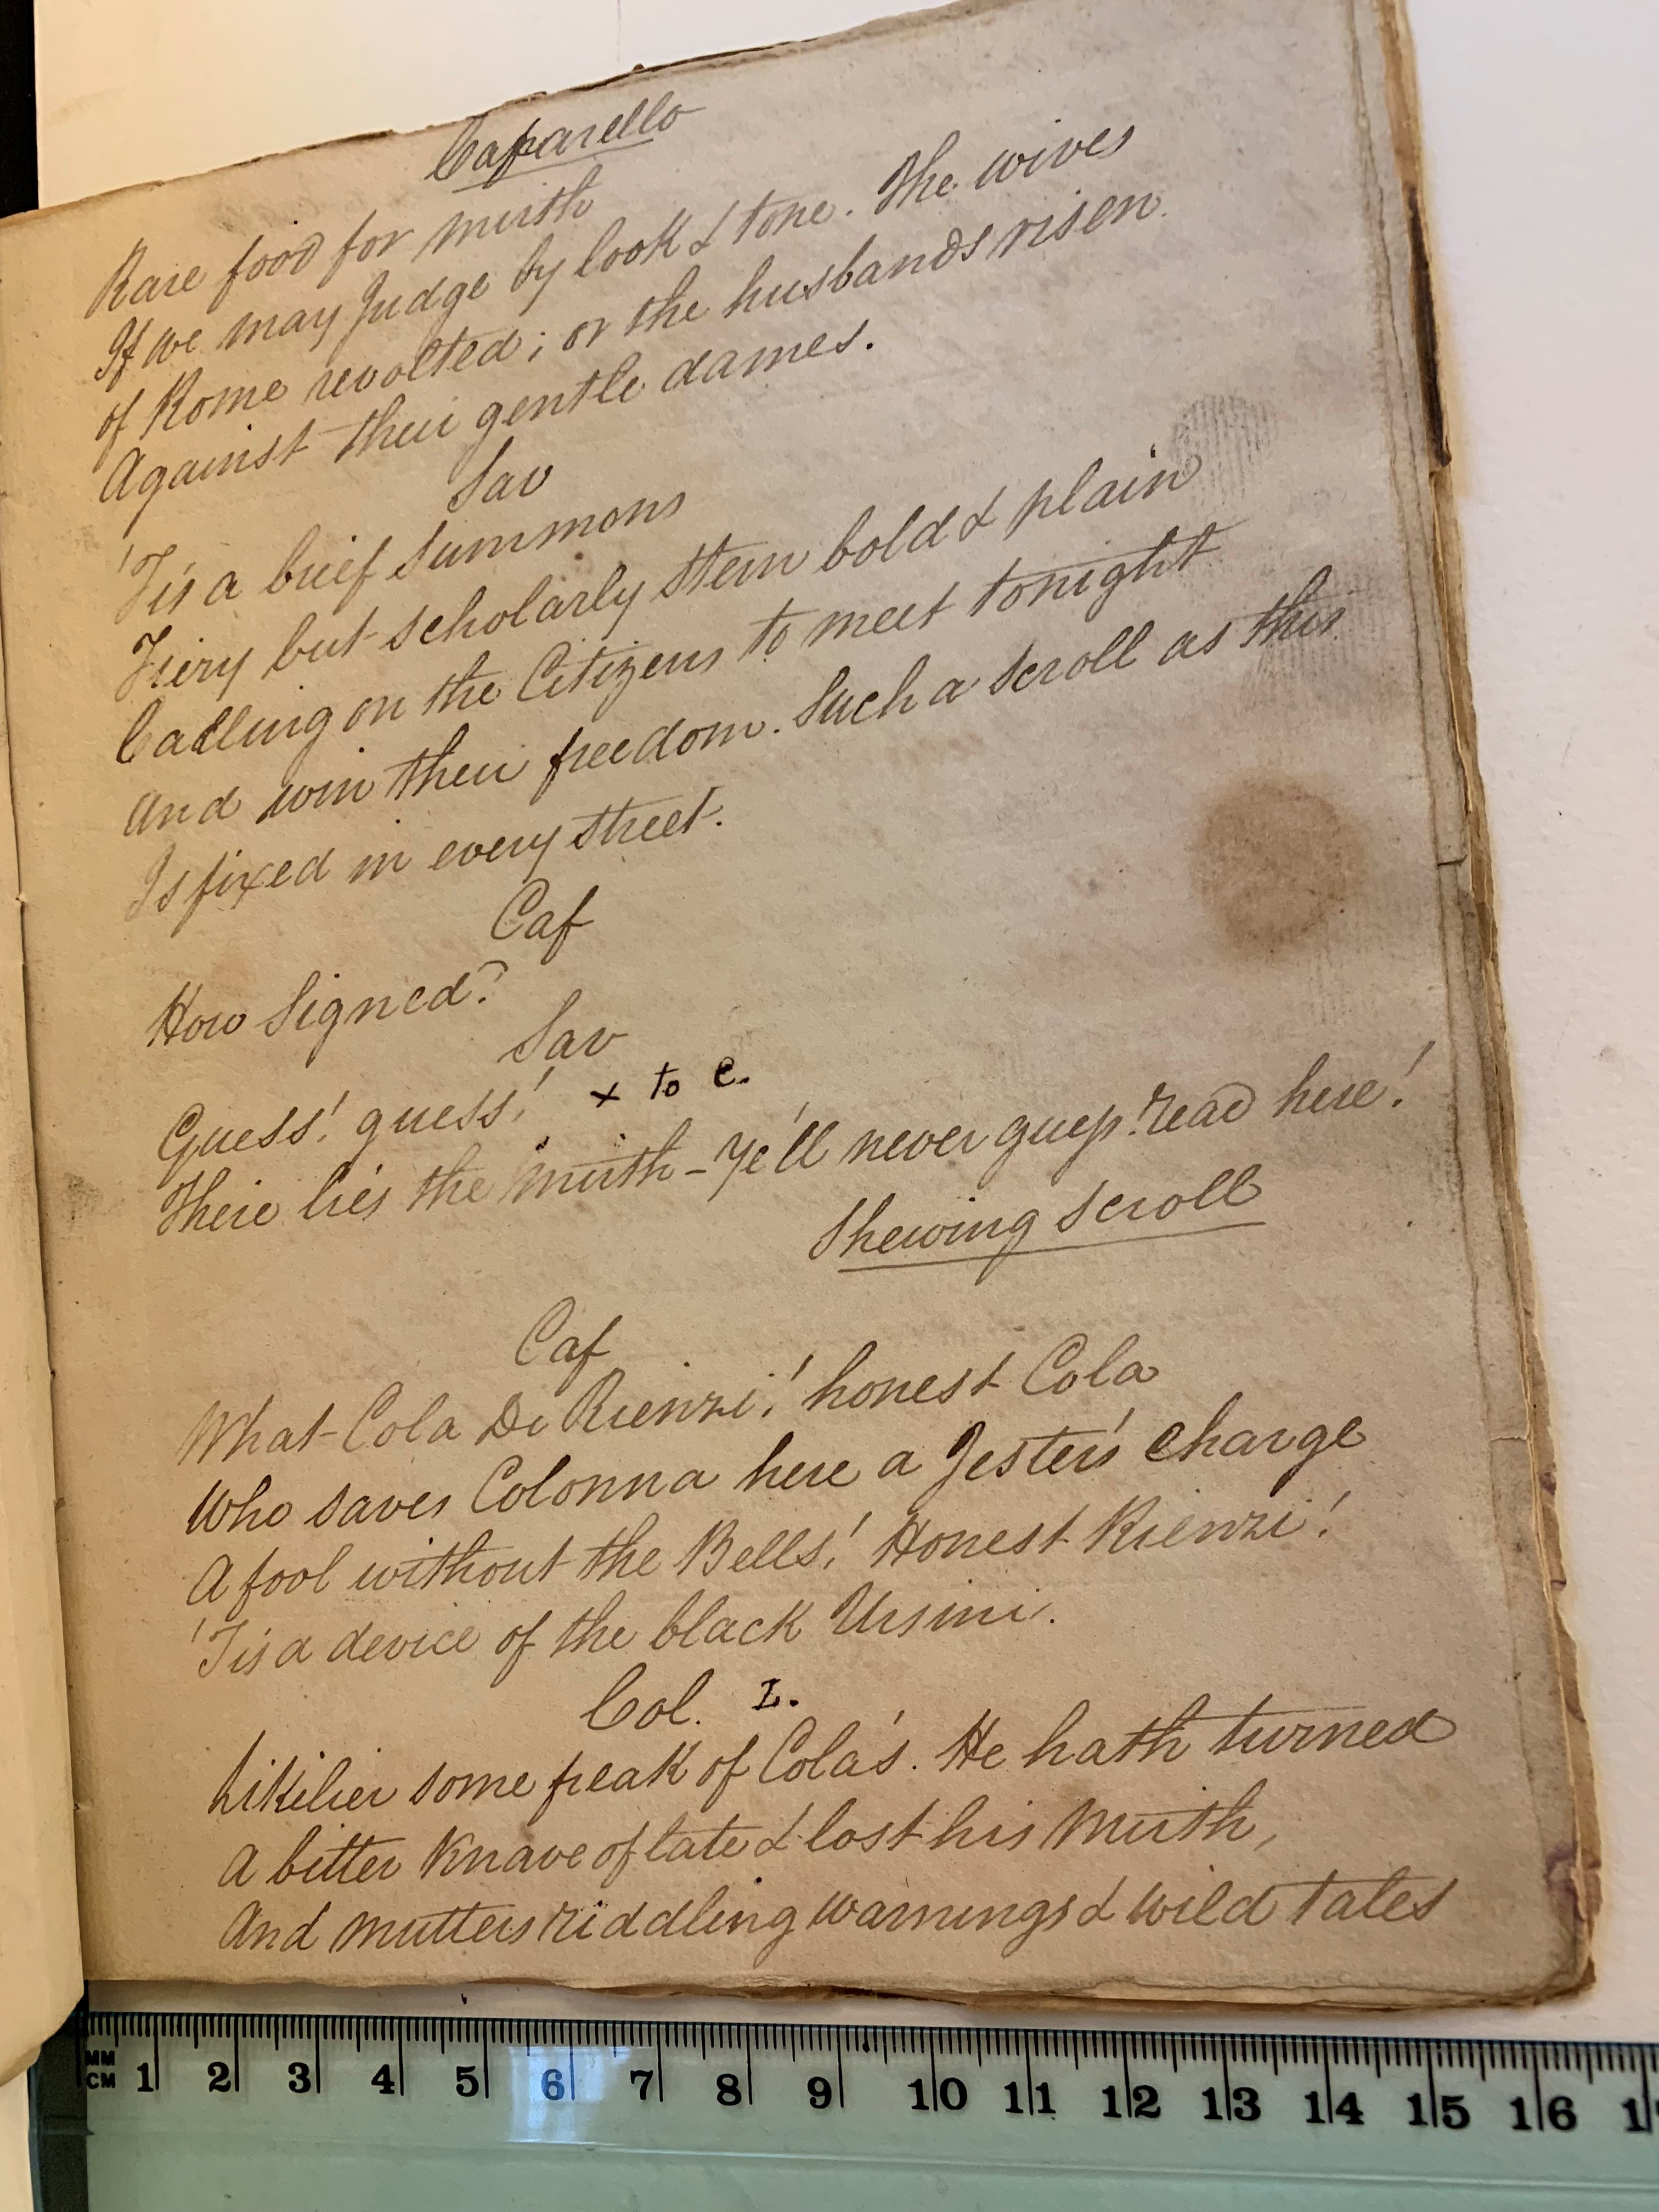 Cafarello
Rare food for mirth
If we may Judge by look & tone. The wives
of Rome revolted; or the husbands risen
Against their gentle dames.
Sav
'Tis a brief summons
Fiery but scholarly stern bold & plain
Calling on the Citizens to meet tonight
And win their freedom. Such a scroll as this
Is fixed in every street.
Caf
How Signed?
Sav
Guess! guess! x to C.
There lies the Mirth - Ye'll never guess! read here!
Shewing Scroll
Caf
What Cola Di Rienzi! honest Cola
Who saves Colonna here a Jester's charge
A fool without the Bells! Honest Rienzi!
'Tis a device of the black Ursini.
Col. L.
Likilier some freak of Cola's. He hath turned
A bitter Knave of late & lost his Mirth,
And mutters riddling warnings & wild tales
MM
CM 1 2 3 4 5 6 7 8 9 10 11 12 13 14 15 16